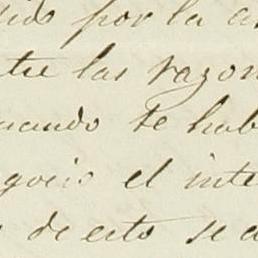 ido por la a
tre las razon
uando te hab
gocio el inte
de esto se a